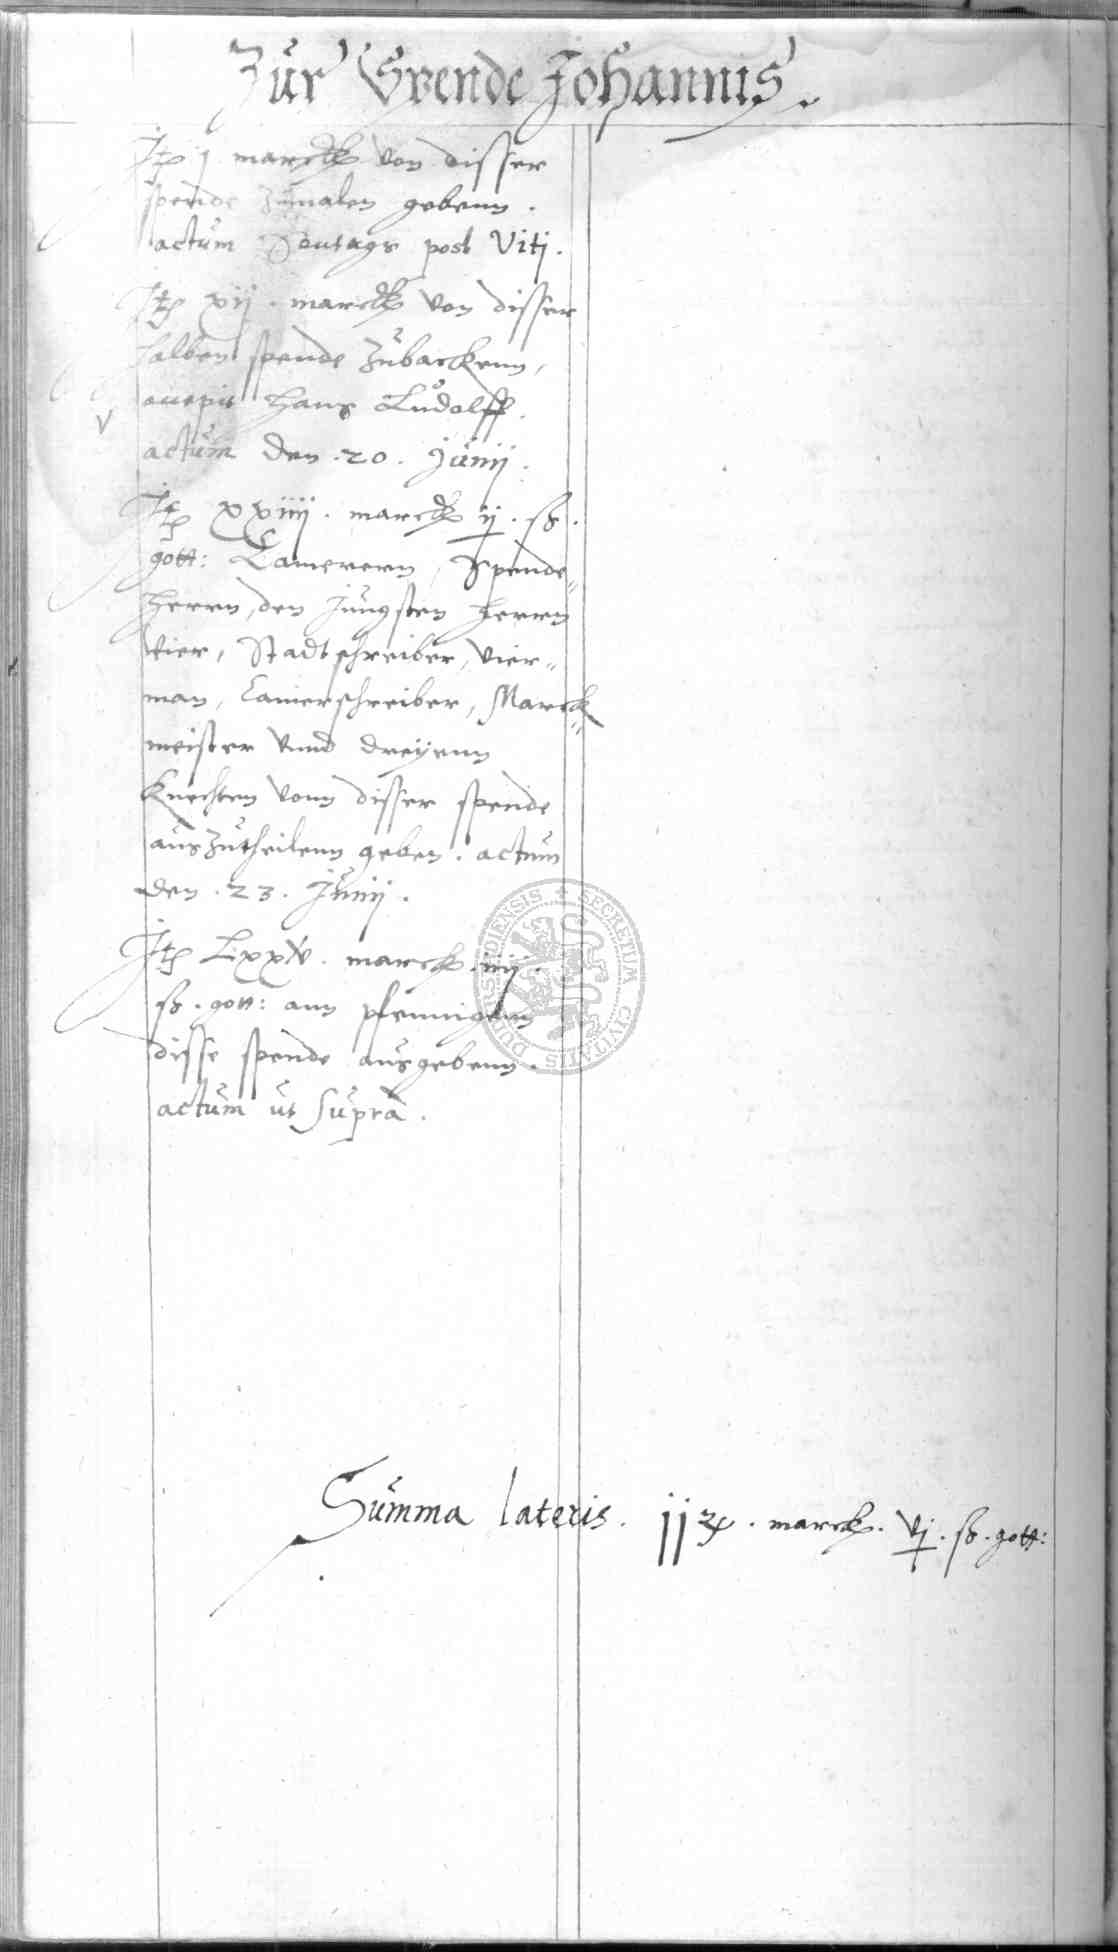 Zur Spende Johannis.
Itē j marck von disser
spende zumalen gebenn.
actum Sontags post Viti.
Itē xij. marck von disser
halben spende zubackenn,
accepit Hans Ludolff.
actum den .20. Junij.
Itē xxiiij. marck ij. ß.
gott: Camerern, Spende=
herrn, den Jungsten herrn
vier, Stadtschreiber, vier=
man, Camerschreiber, Marck=
meister vnnd dreyenn
Knechten vonn disser spende
auszutheilenn geben. actum
den .23. Junij.
Itē Lxxv. marck. iiij.
ß. gott: ann pfennigenn
disse spende ausgebenn.
actum ut supra.
SECRETUM CIVITATIS
Summa lateris. marck. vj. ß. gott: